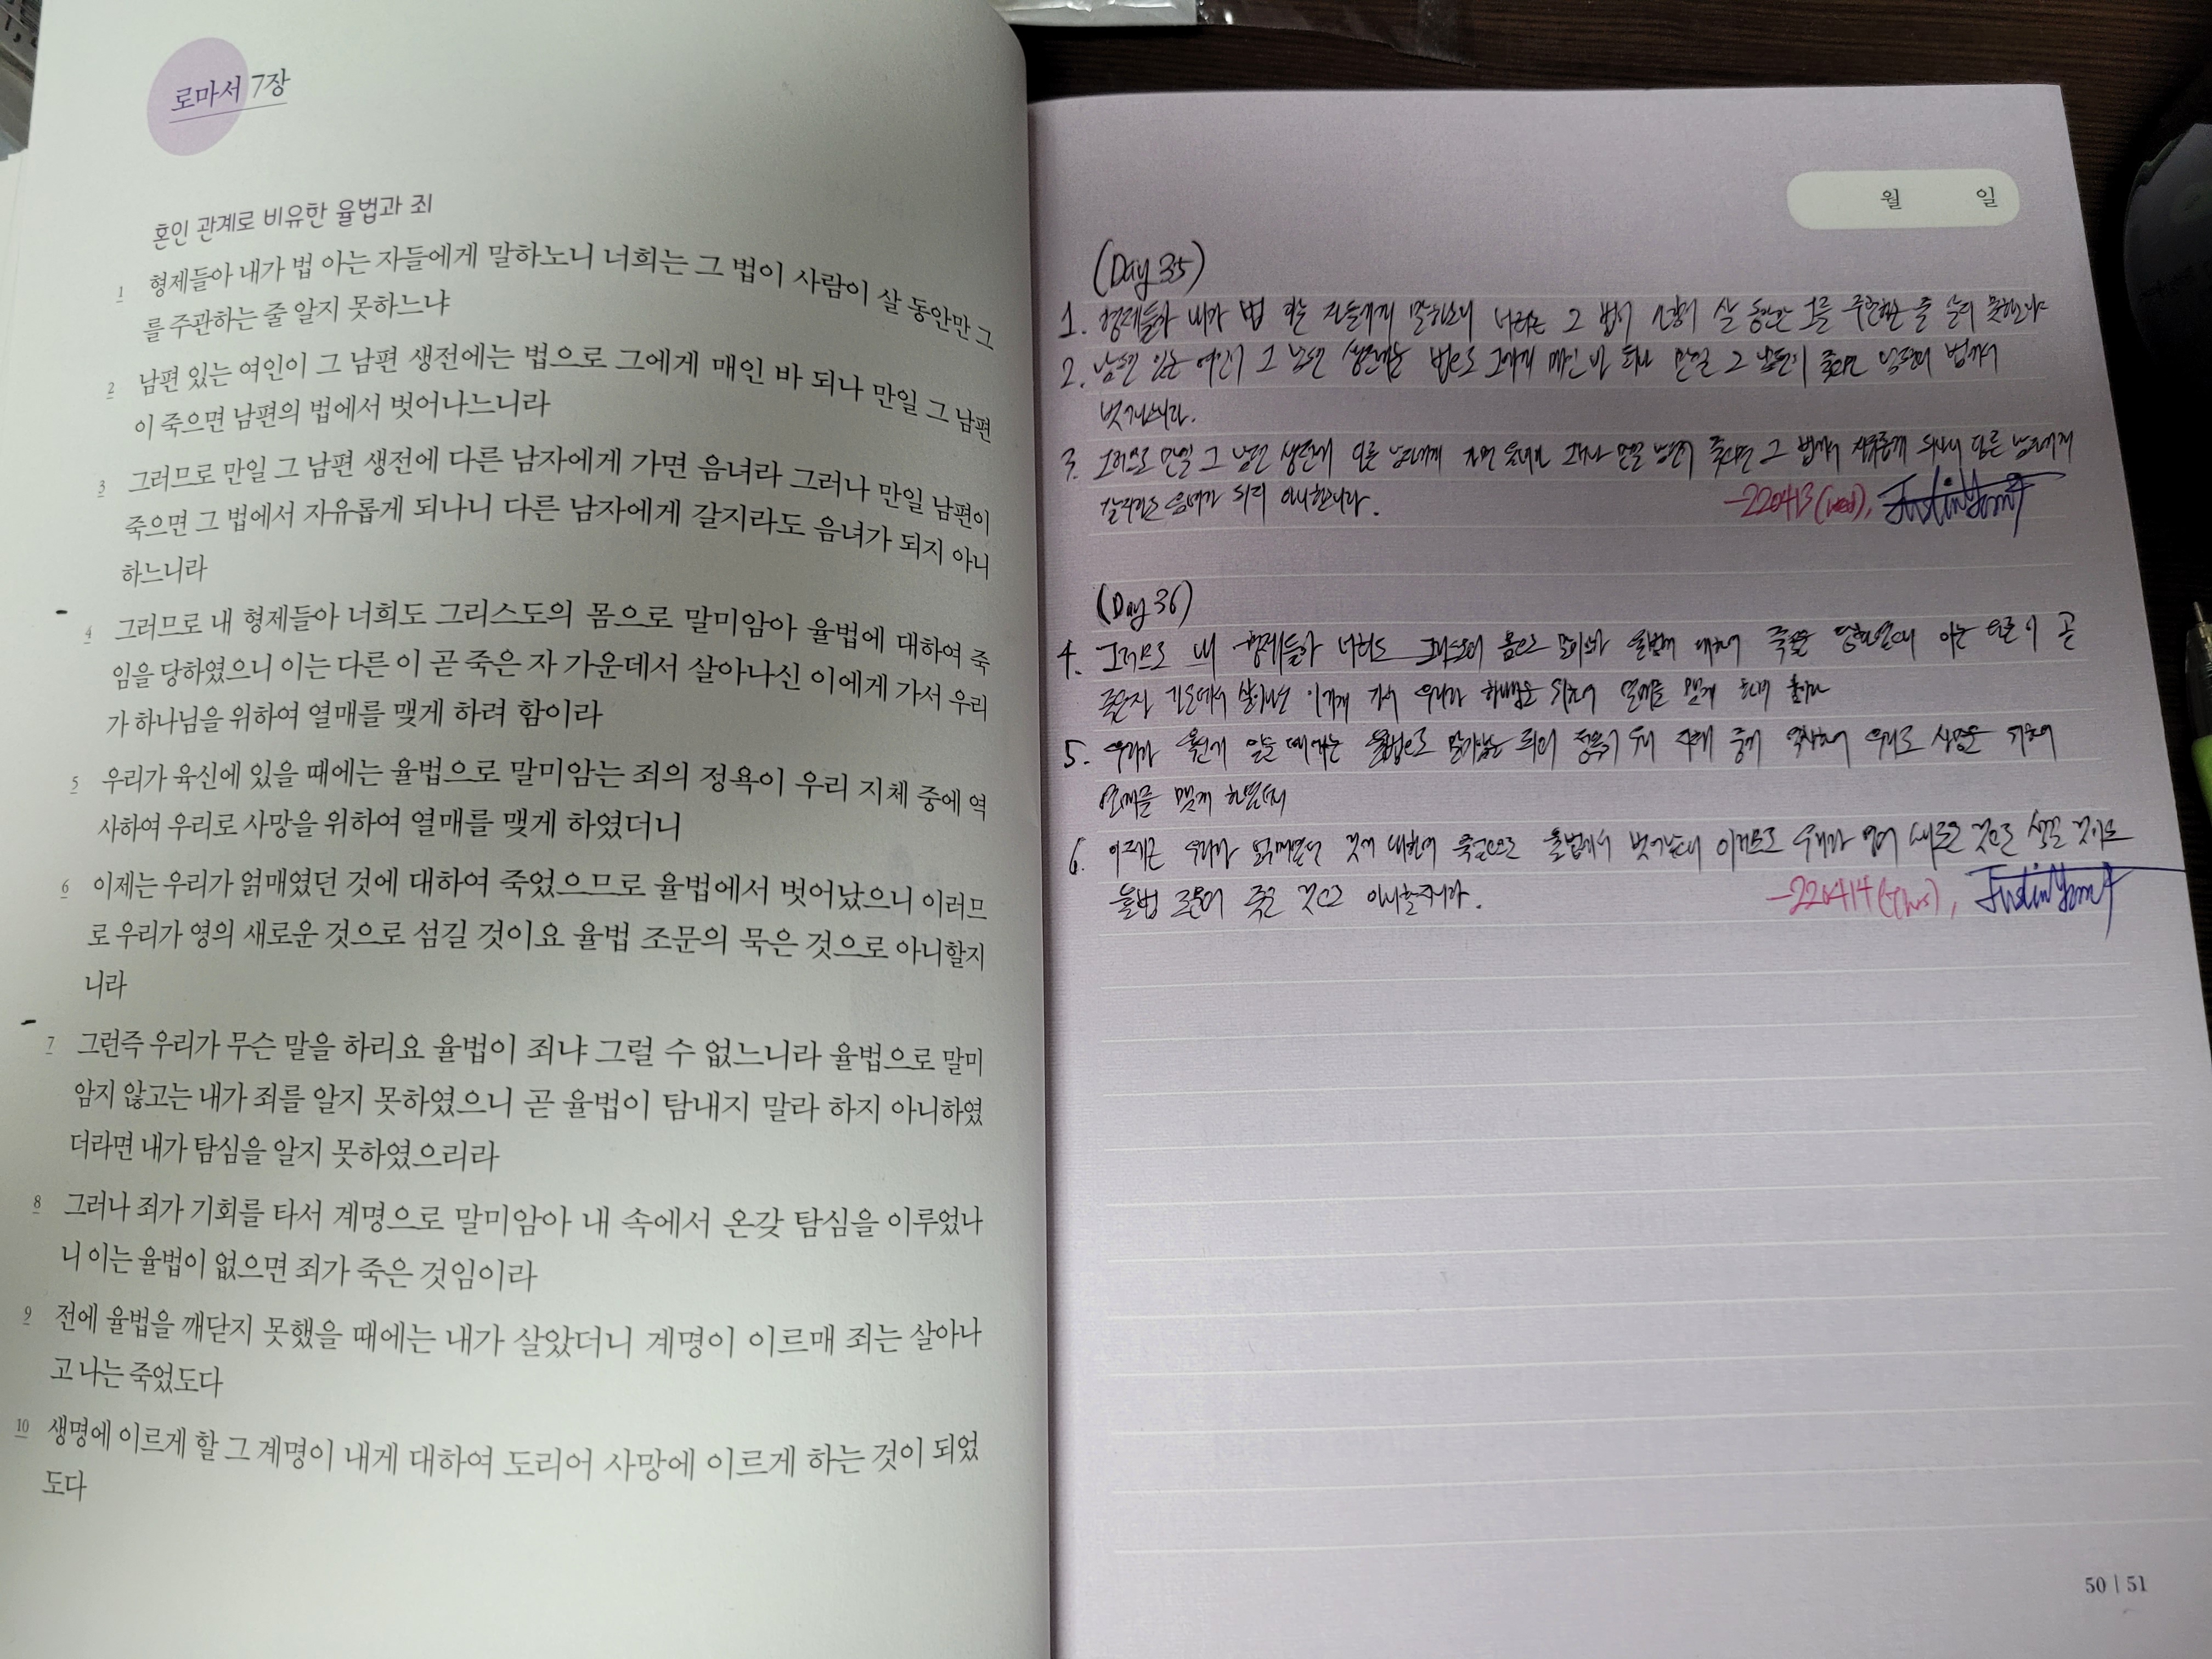 로마서 7장
혼인 관계로 비유한 율법과 죄
1 형제들아 내가 법 아는 자들에게 말하노니 너희는 그 법이 사람이 살 동안만 그
를 주관하는 줄 알지 못하느냐
2 남편 있는 여인이 그 남편 생전에는 법으로 그에게 매인 바 되나 만일 그 남편
이 죽으면 남편의 법에서 벗어나느니라
3 그러므로 만일 그 남편 생전에 다른 남자에게 가면 음녀라 그러나 만일 남편이
죽으면 그 법에서 자유롭게 되나니 다른 남자에게 갈지라도 음녀가 되지 아니
하느니라
4 그러므로 내 형제들아 너희도 그리스도의 몸으로 말미암아 율법에 대하여 죽
임을 당하였으니 이는 다른 이 곧 죽은 자 가운데서 살아나신 이에게 가서 우리
가 하나님을 위하여 열매를 맺게 하려 함이라
5 우리가 육신에 있을 때에는 율법으로 말미암는 죄의 정욕이 우리 지체 중에 역
사하여 우리로 사망을 위하여 열매를 맺게 하였더니
6 이제는 우리가 얽매였던 것에 대하여 죽었으므로 율법에서 벗어났으니 이러므
로 우리가 영의 새로운 것으로 섬길 것이요 율법 조문의 묵은 것으로 아니할지
니라
7 그런즉 우리가 무슨 말을 하리요 율법이 죄냐 그럴 수 없느니라 율법으로 말미
암지 않고는 내가 죄를 알지 못하였으니 곧 율법이 탐내지 말라 하지 아니하였
더라면 내가 탐심을 알지 못하였으리라
8 그러나 죄가 기회를 타서 계명으로 말미암아 내 속에서 온갖 탐심을 이루었나
니 이는 율법이 없으면 죄가 죽은 것임이라
9 전에 율법을 깨닫지 못했을 때에는 내가 살았더니 계명이 이르매 죄는 살아나
고 나는 죽었도다
10 생명에 이르게 할 그 계명이 내게 대하여 도리어 사망에 이르게 하는 것이 되었
도다
월 일
(Day 35)
1. 형제들아 내가 법 아는 자들에게 말하노니 너희는 그 법이 사람이 살 동안만 그를 주관하는 줄 알지 못하느냐
2. 남편 있는 여인이 그 남편 생전에는 법으로 그에게 매인 바 되나 만일 그 남편이 죽으면 남편의 법에서
벗어나느니라.
3. 그러므로 만일 그 남편 생전에 다른 남자에게 가면 음녀라 그러나 만일 남편이 죽으면 그 법에서 자유롭게 되나니 다른 남자에게
갈지라도 음녀가 되지 아니하느니라.
-220413(wed),
(Day 36)
4. 그러므로 내 형제들아 너희도 그리스도의 몸으로 말미암아 율법에 대하여 죽임을 당하였으니 이는 다른 이 곧
죽은 자 가운데서 살아나신 이에게 가서 우리가 하나님을 위하여 열매를 맺게 하려 함이라
5. 우리가 육신에 있을 때에는 율법으로 말미암는 죄의 정욕이 우리 지체 중에 역사하여 우리로 사망을 위하여
열매를 맺게 하였더니
6. 이제는 우리가 얽매였던 것에 대하여 죽었으므로 율법에서 벗어났으니 이러므로 우리가 영의 새로운 것으로 섬길 것이요
율법 조문의 묵은 것으로 아니할지니라.
-220414(Thur),
50 | 51